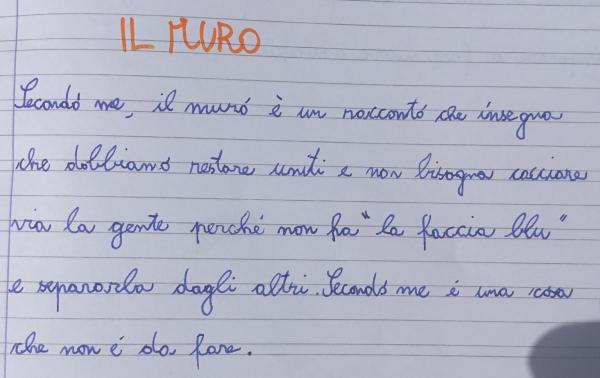 IL MURO
Secondo me, il muro è un racconto che insegna
che dobbiamo restare uniti e non bisogna cacciare
via la gente perché non ha "la faccia blu"
e separarla dagli altri. Secondo me é una cosa
che non é da fare.